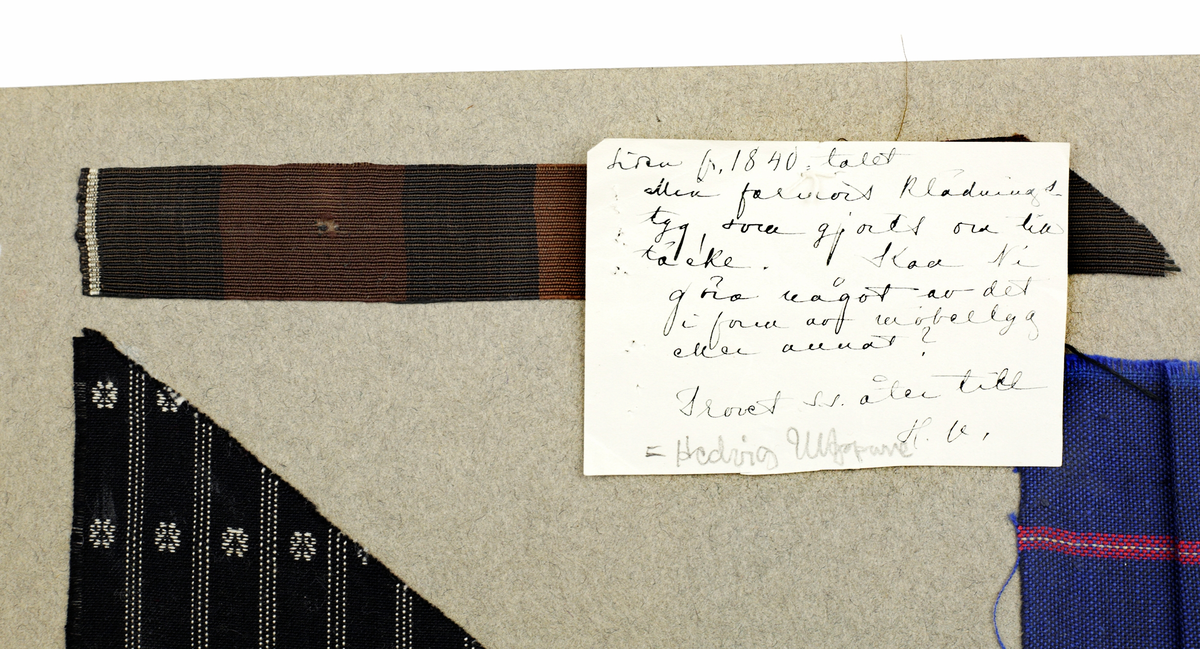 Siden fr, 1840. talet
Min farmors klädnings-
tyg, som gjorts om till
täcke. Kan Ni
göra något av det
i form av möbeltyg
eller annat?
Provet s.s. åter till
H. U.
= Hedvig